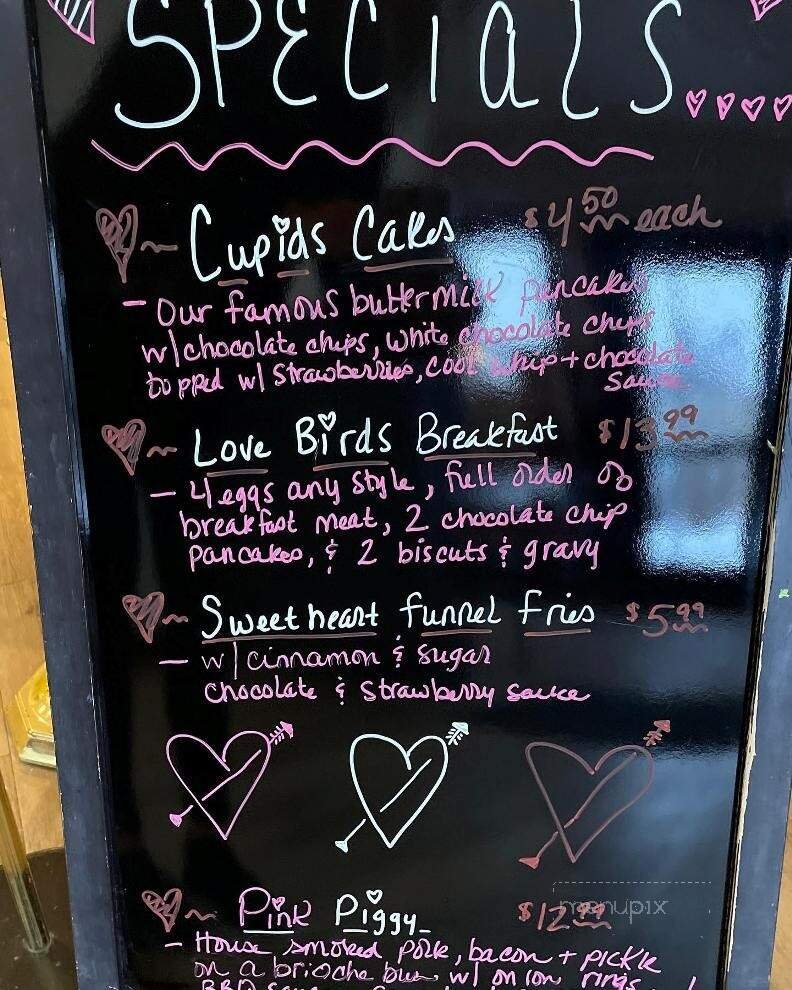 SPECIALS
Cupids Cakes $4.50 each
- Our famous buttermilk pancakes
w/ chocolate chips, white chocolate chips
topped w/ strawberries, cool whip + chocolate
sauce
Love Birds Breakfast $13.99
- 4 eggs any style, full order of
breakfast meat, 2 chocolate chip
pancakes, & 2 biscuts & gravy
Sweetheart funnel fries $5.99
- w/ cinnamon & sugar
chocolate & strawberry sauce
Pink Piggy - $12.99
menupix
- House smoked pork, bacon + pickle
on a brioche bun w/ onion rings
BBQ